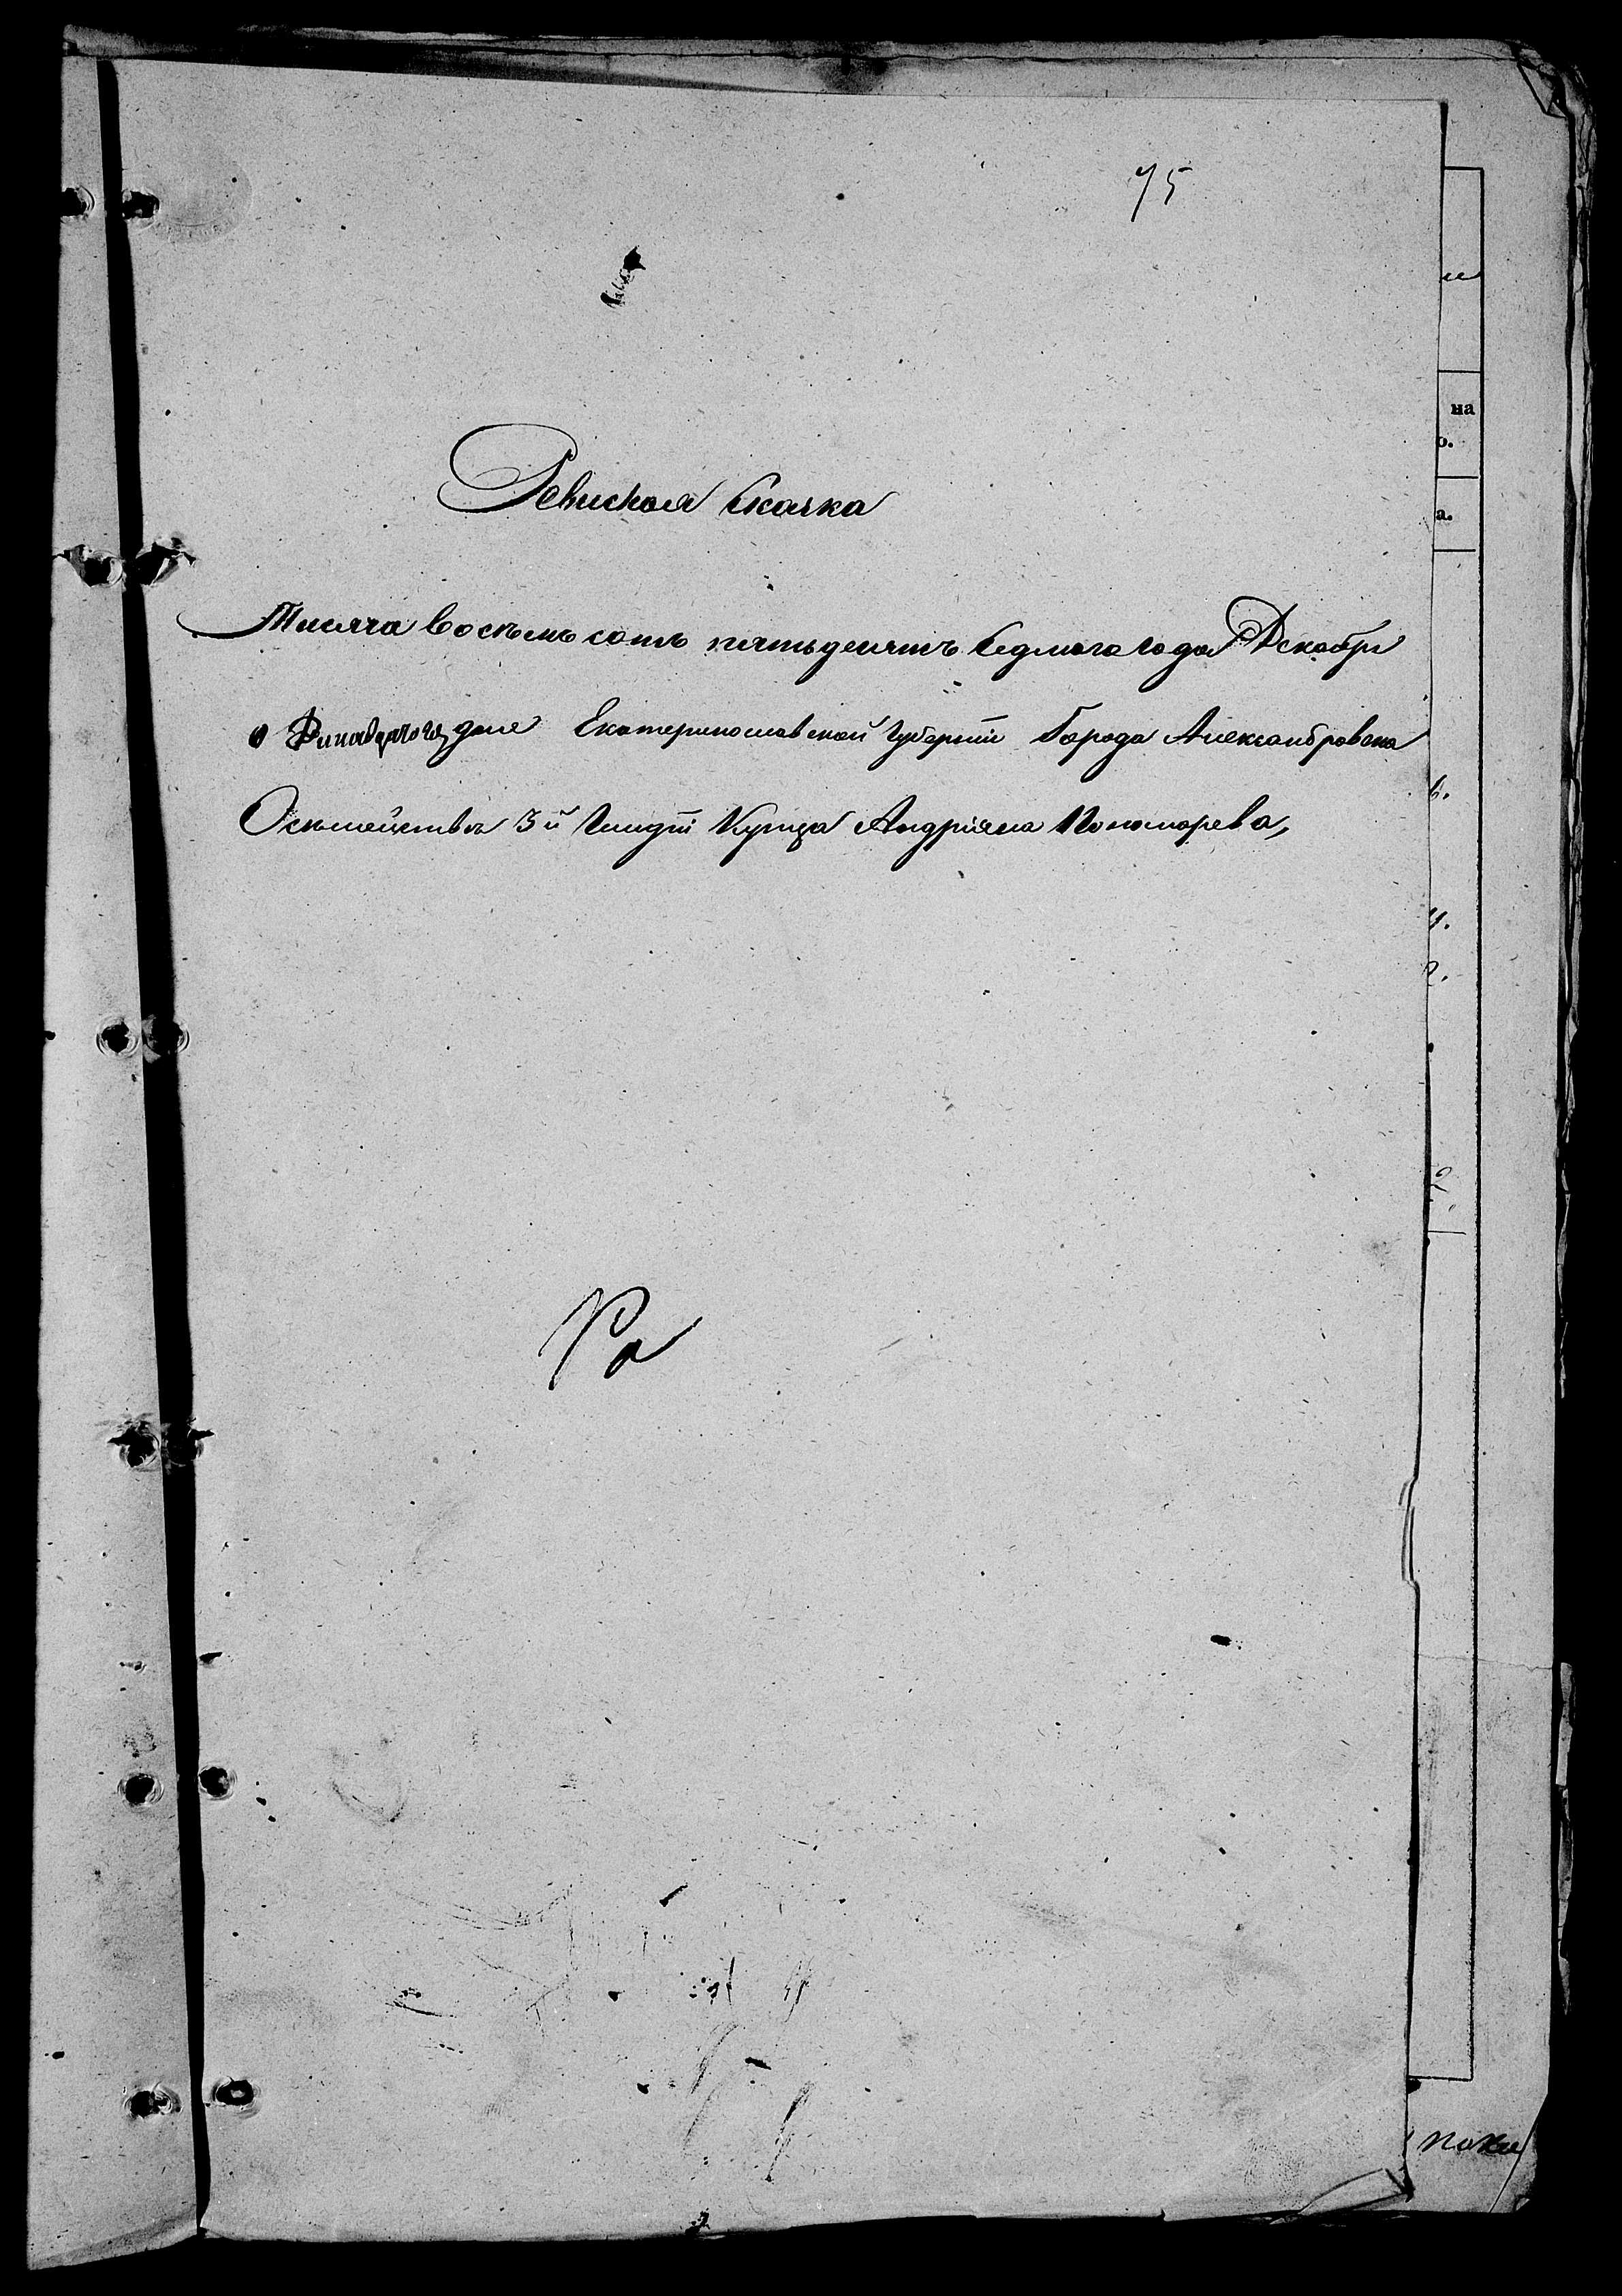 75
Ревиская Скаска
Тисяча восемь сотъ пятьдесятъ Седмаго года Декабря
дня Екатеринославской Губернiи Города Александровска
Осемействѣ 3й Гилдiи Купца Андрiяна Пономарева,
на
о.
а.